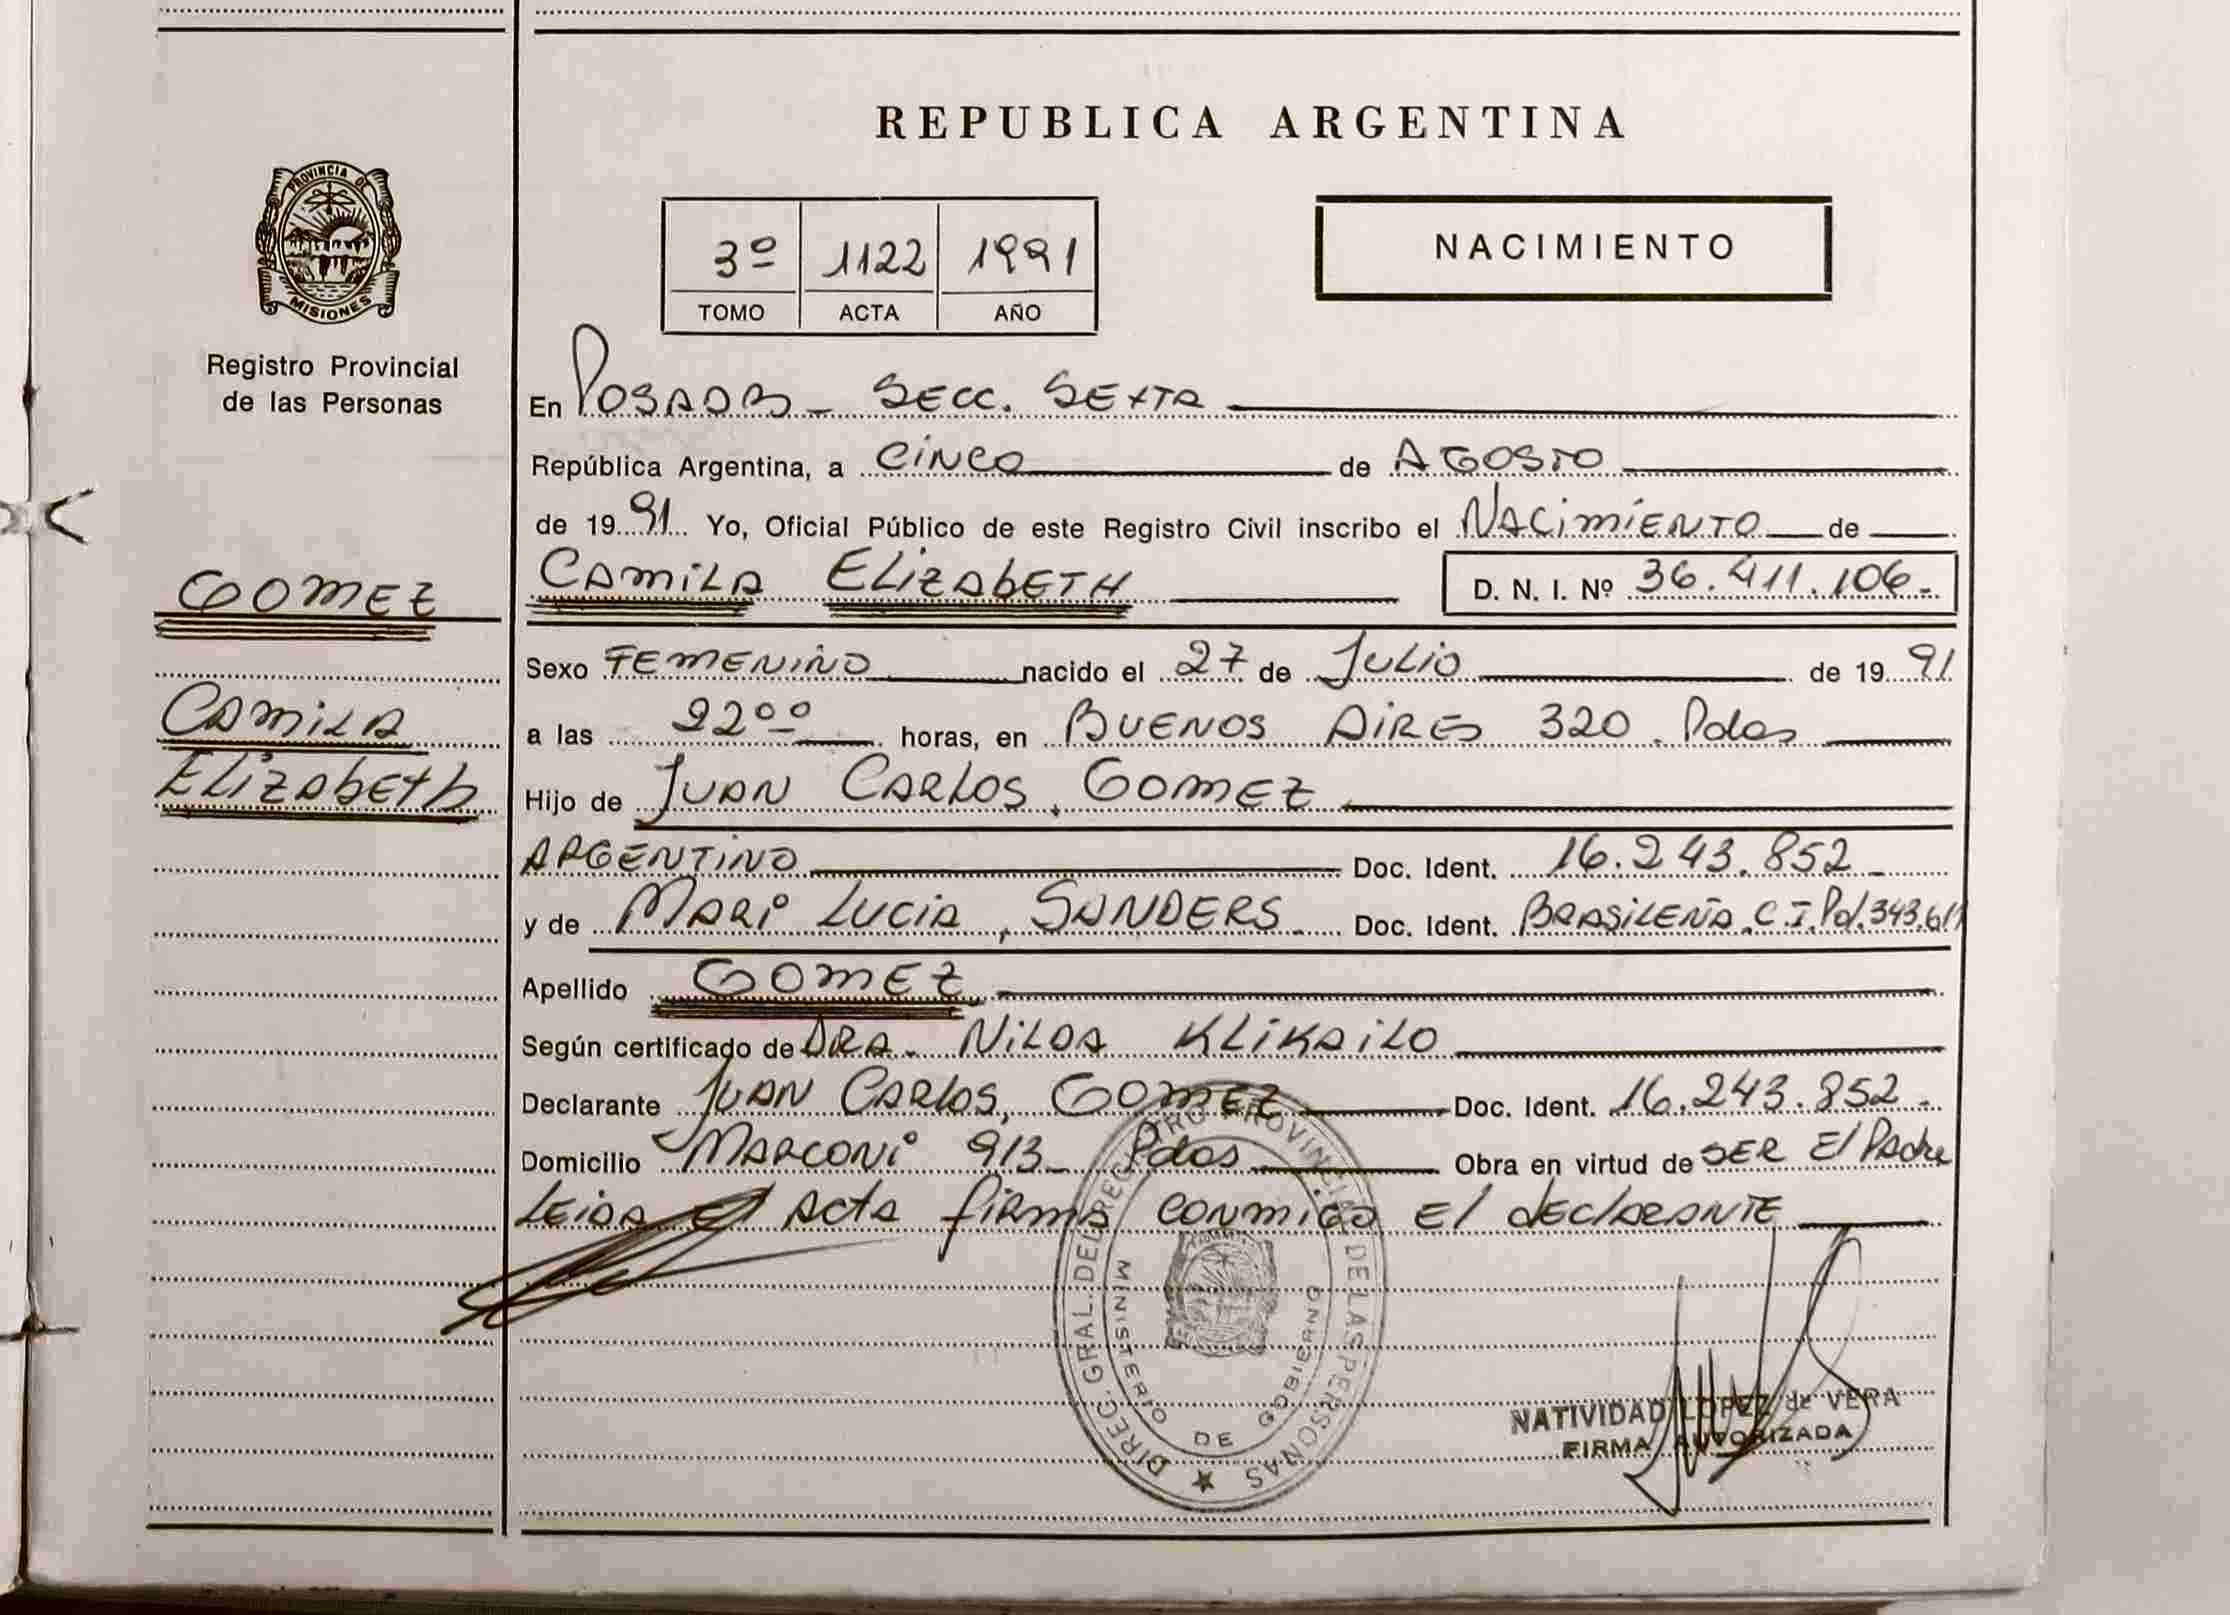 REPUBLICA ARGENTINA
PROVINCIA DE
MISIONES
Registro Provincial
de las Personas
3º 1122 1991
TOMO ACTA AÑO
NACIMIENTO
En Posadas - Secc. Sexta
República Argentina, a Cinco de Agosto
de 1991 Yo, Oficial Público de este Registro Civil inscribo el Nacimiento de
GOMEZ
Camila Elizabeth D. N. I. Nº 36.411.106.-
Sexo Femenino nacido el 27 de Julio de 1991
Camila
Elizabeth
a las 22ºº horas, en Buenos Aires 320. Pdas
Hijo de Juan Carlos, Gomez
Argentino Doc. Ident. 16.243.852 -
y de Mari Lucia, Sanders. Doc. Ident. Brasileña C.I.Pol.343.611
Apellido GOMEZ
Según certificado de Dra. Nilda Klikailo
Declarante Juan Carlos, Gomez Doc. Ident. 16.243.852 -
Domicilio Marconi 913 - Pdas Obra en virtud de ser el Padre
Leida el acta firma conmigo el declarante
DIREC. GRAL. DEL REGISTRO PROVINCIAL DE LAS PERSONAS
MINISTERIO DE GOBIERNO
NATIVIDAD LOPEZ de VERA
FIRMA AUTORIZADA